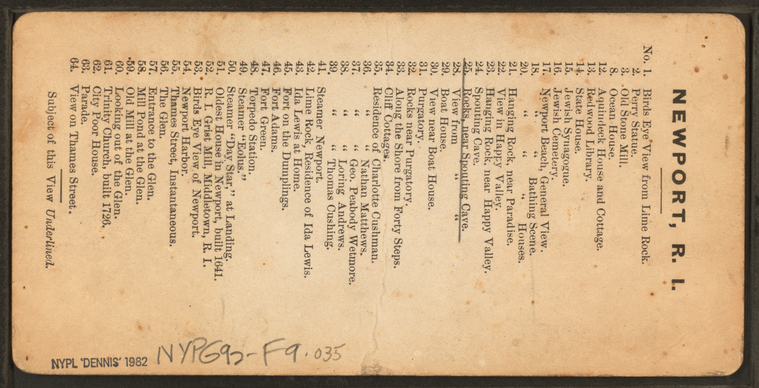 NEWPORT, R. I.
No. 1. Birds Eye View from Lime Rock.
2. Perry Statue.
3. Old Stone Mill.
8. Ocean House.
12. Aquidneck House and Cottage.
13. Redwood Library.
14. State House.
15. Jewish Synagogue.
16. Jewish Cemetery.
17. Newport Beach, General View.
18. " " Bathing Scene.
20. " " Houses.
21. Hanging Rock, near Paradise.
22. View in Happy Valley.
23. Hanging Rock, near Happy Valley.
24. Spouting Cave.
25. Rocks, near Spouting Cave.
28. View from " "
29. Boat House.
30. View near Boat House.
31. Purgatory.
32. Rocks near Purgatory.
33. Along the Shore from Forty Steps.
34. Cliff Cottages.
35. Residence of Charlotte Cushman.
36. " " Nathan Matthews.
37. " " Geo. Peabody Wetmore.
38. " " Loring Andrews.
39. " " Thomas Cushing.
41. Steamer Newport.
42. Lime Rock, Residence of Ida Lewis.
43. Ida Lewis at Home.
45. Fort on the Dumplings.
46. Fort Adams.
47. Fort Green.
48. Torpedo Station.
49. Steamer "Eolus."
50. Steamer "Day Star," at Landing.
51. Oldest House in Newport, built 1641.
52. Old Grist Mill, Middletown, R. I.
53. Bird Eye View of Newport.
54. Newport Harbor.
55. Thames Street, Instantaneous.
56. The Glen.
57. Entrance to the Glen.
58. Mill Pond at the Glen.
59. Old Mill at the Glen.
60. Looking out of the Glen.
61. Trinity Church, built 1726.
62. City Poor House.
63. Parade.
64. View on Thames Street.
Subject of this View Underlined.
NYPL 'DENNIS' 1982
NYPG92-F9.035